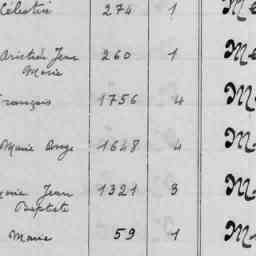 Célestin 274 1 Me
Christian Jean 260 1 Me
Marie
François 1756 4 M
Marie Ange 1648 4 M
Marie Jean 1321 3 M
Baptiste
Marie 59 1 M